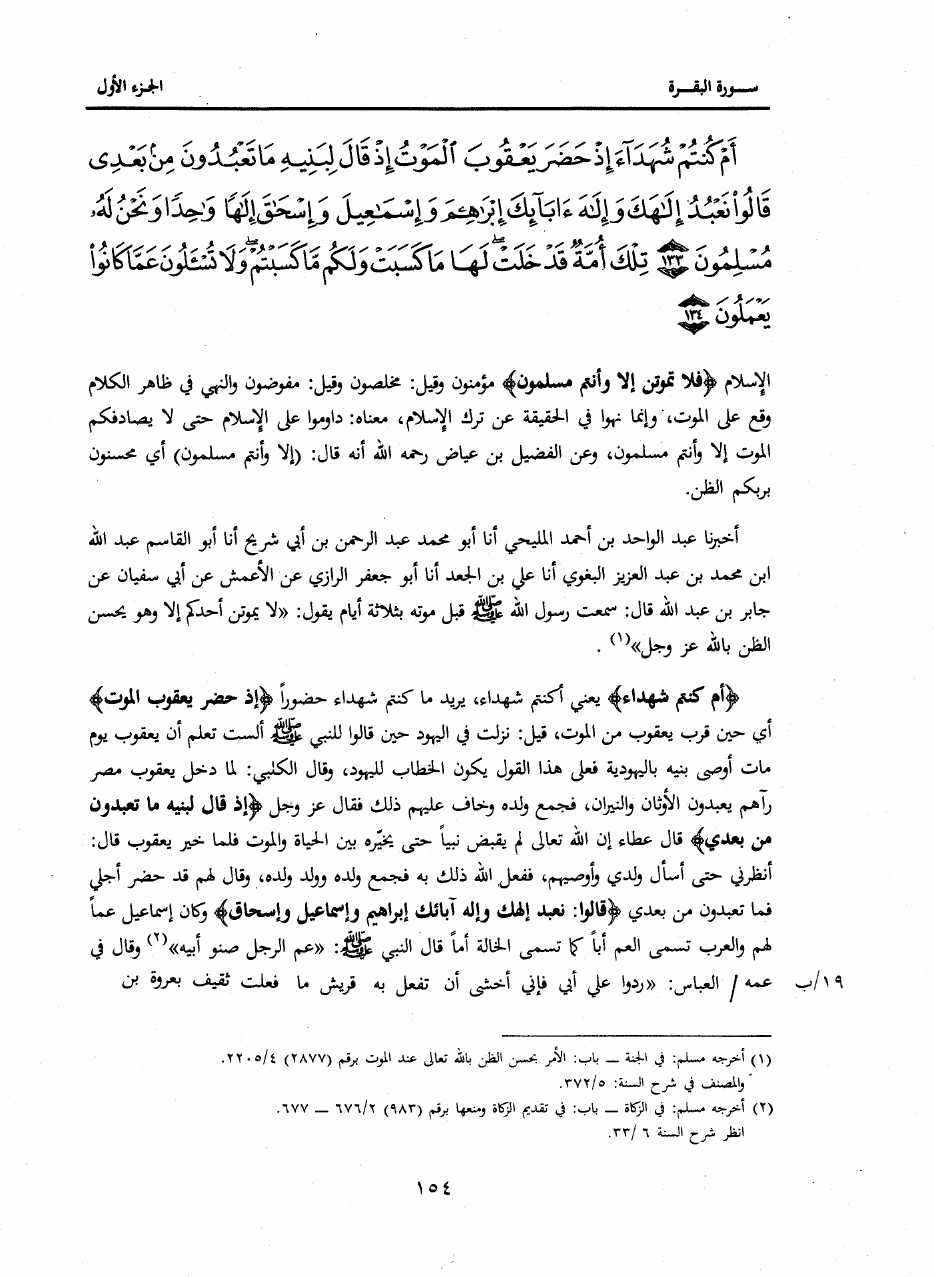 سـورة البقـرة
الجزء الأول
أَمْ كُنتُمْ شُهَدَآءَ إِذْ حَضَرَ يَعْقُوبَ ٱلْمَوْتُ إِذْ قَالَ لِبَنِيهِ مَا تَعْبُدُونَ مِنۢ بَعْدِى
قَالُوا۟ نَعْبُدُ إِلَٰهَكَ وَإِلَٰهَ ءَابَآئِكَ إِبْرَٰهِـۧمَ وَإِسْمَٰعِيلَ وَإِسْحَٰقَ إِلَٰهًا وَٰحِدًا وَنَحْنُ لَهُۥ
مُسْلِمُونَ ١٣٣ تِلْكَ أُمَّةٌ قَدْ خَلَتْ ۖ لَهَا مَا كَسَبَتْ وَلَكُم مَّا كَسَبْتُمْ ۖ وَلَا تُسْـَٔلُونَ عَمَّا كَانُوا۟
يَعْمَلُونَ ١٣٤
الإسلام ﴿فلا تموتن إلا وأنتم مسلمون﴾ مؤمنون وقيل: مخلصون وقيل: مفوضون والنهي في ظاهر الكلام
وقع على الموت، وإنما نهوا في الحقيقة عن ترك الإسلام، معناه: داوموا على الإسلام حتى لا يصادفكم
الموت إلا وأنتم مسلمون، وعن الفضيل بن عياض رحمه الله أنه قال: (إلا وأنتم مسلمون) أي محسنون
بربكم الظن.
أخبرنا عبد الواحد بن أحمد المليحي أنا أبو محمد عبد الرحمن بن أبي شريح أنا أبو القاسم عبد الله
ابن محمد بن عبد العزيز البغوي أنا علي بن الجعد أنا أبو جعفر الرازي عن الأعمش عن أبي سفيان عن
جابر بن عبد الله قال: سمعت رسول الله ﷺ قبل موته بثلاثة أيام يقول: «لا يموتن أحدكم إلا وهو يحسن
الظن بالله عز وجل»(١) .
﴿أم كنتم شهداء﴾ يعني أكنتم شهداء، يريد ما كنتم شهداء حضوراً ﴿إذ حضر يعقوب الموت﴾
أي حين قرب يعقوب من الموت، قيل: نزلت في اليهود حين قالوا للنبي ﷺ ألست تعلم أن يعقوب يوم
مات أوصى بنيه باليهودية فعلى هذا القول يكون الخطاب لليهود، وقال الكلبي: لما دخل يعقوب مصر
رآهم يعبدون الأوثان والنيران، فجمع ولده وخاف عليهم ذلك فقال عز وجل ﴿إذ قال لبنيه ما تعبدون
من بعدي﴾ قال عطاء إن الله تعالى لم يقبض نبياً حتى يخيّره بين الحياة والموت فلما خير يعقوب قال:
أنظرني حتى أسأل ولدي وأوصيهم، ففعل الله ذلك به فجمع ولده وولد ولده، وقال لهم قد حضر أجلي
فما تعبدون من بعدي ﴿قالوا: نعبد إلهك وإله آبائك إبراهيم وإسماعيل وإسحاق﴾ وكان إسماعيل عماً
لهم والعرب تسمى العم أباً كما تسمى الخالة أماً قال النبي ﷺ: «عم الرجل صنو أبيه»(٢) وقال في
١٩/ب عمه / العباس: «ردوا علي أبي فإني أخشى أن تفعل به قريش ما فعلت ثقيف بعروة بن
(١) أخرجه مسلم: في الجنة ــ باب: الأمر بحسن الظن بالله تعالى عند الموت برقم (٢٨٧٧) ٢٢٠٥/٤.
والمصنف في شرح السنة: ٣٧٢/٥.
(٢) أخرجه مسلم: في الزكاة ــ باب: في تقديم الزكاة ومنعها برقم (٩٨٣) ٦٧٦/٢ ــ ٦٧٧.
انظر شرح السنة ٦ /٣٣.
١٥٤